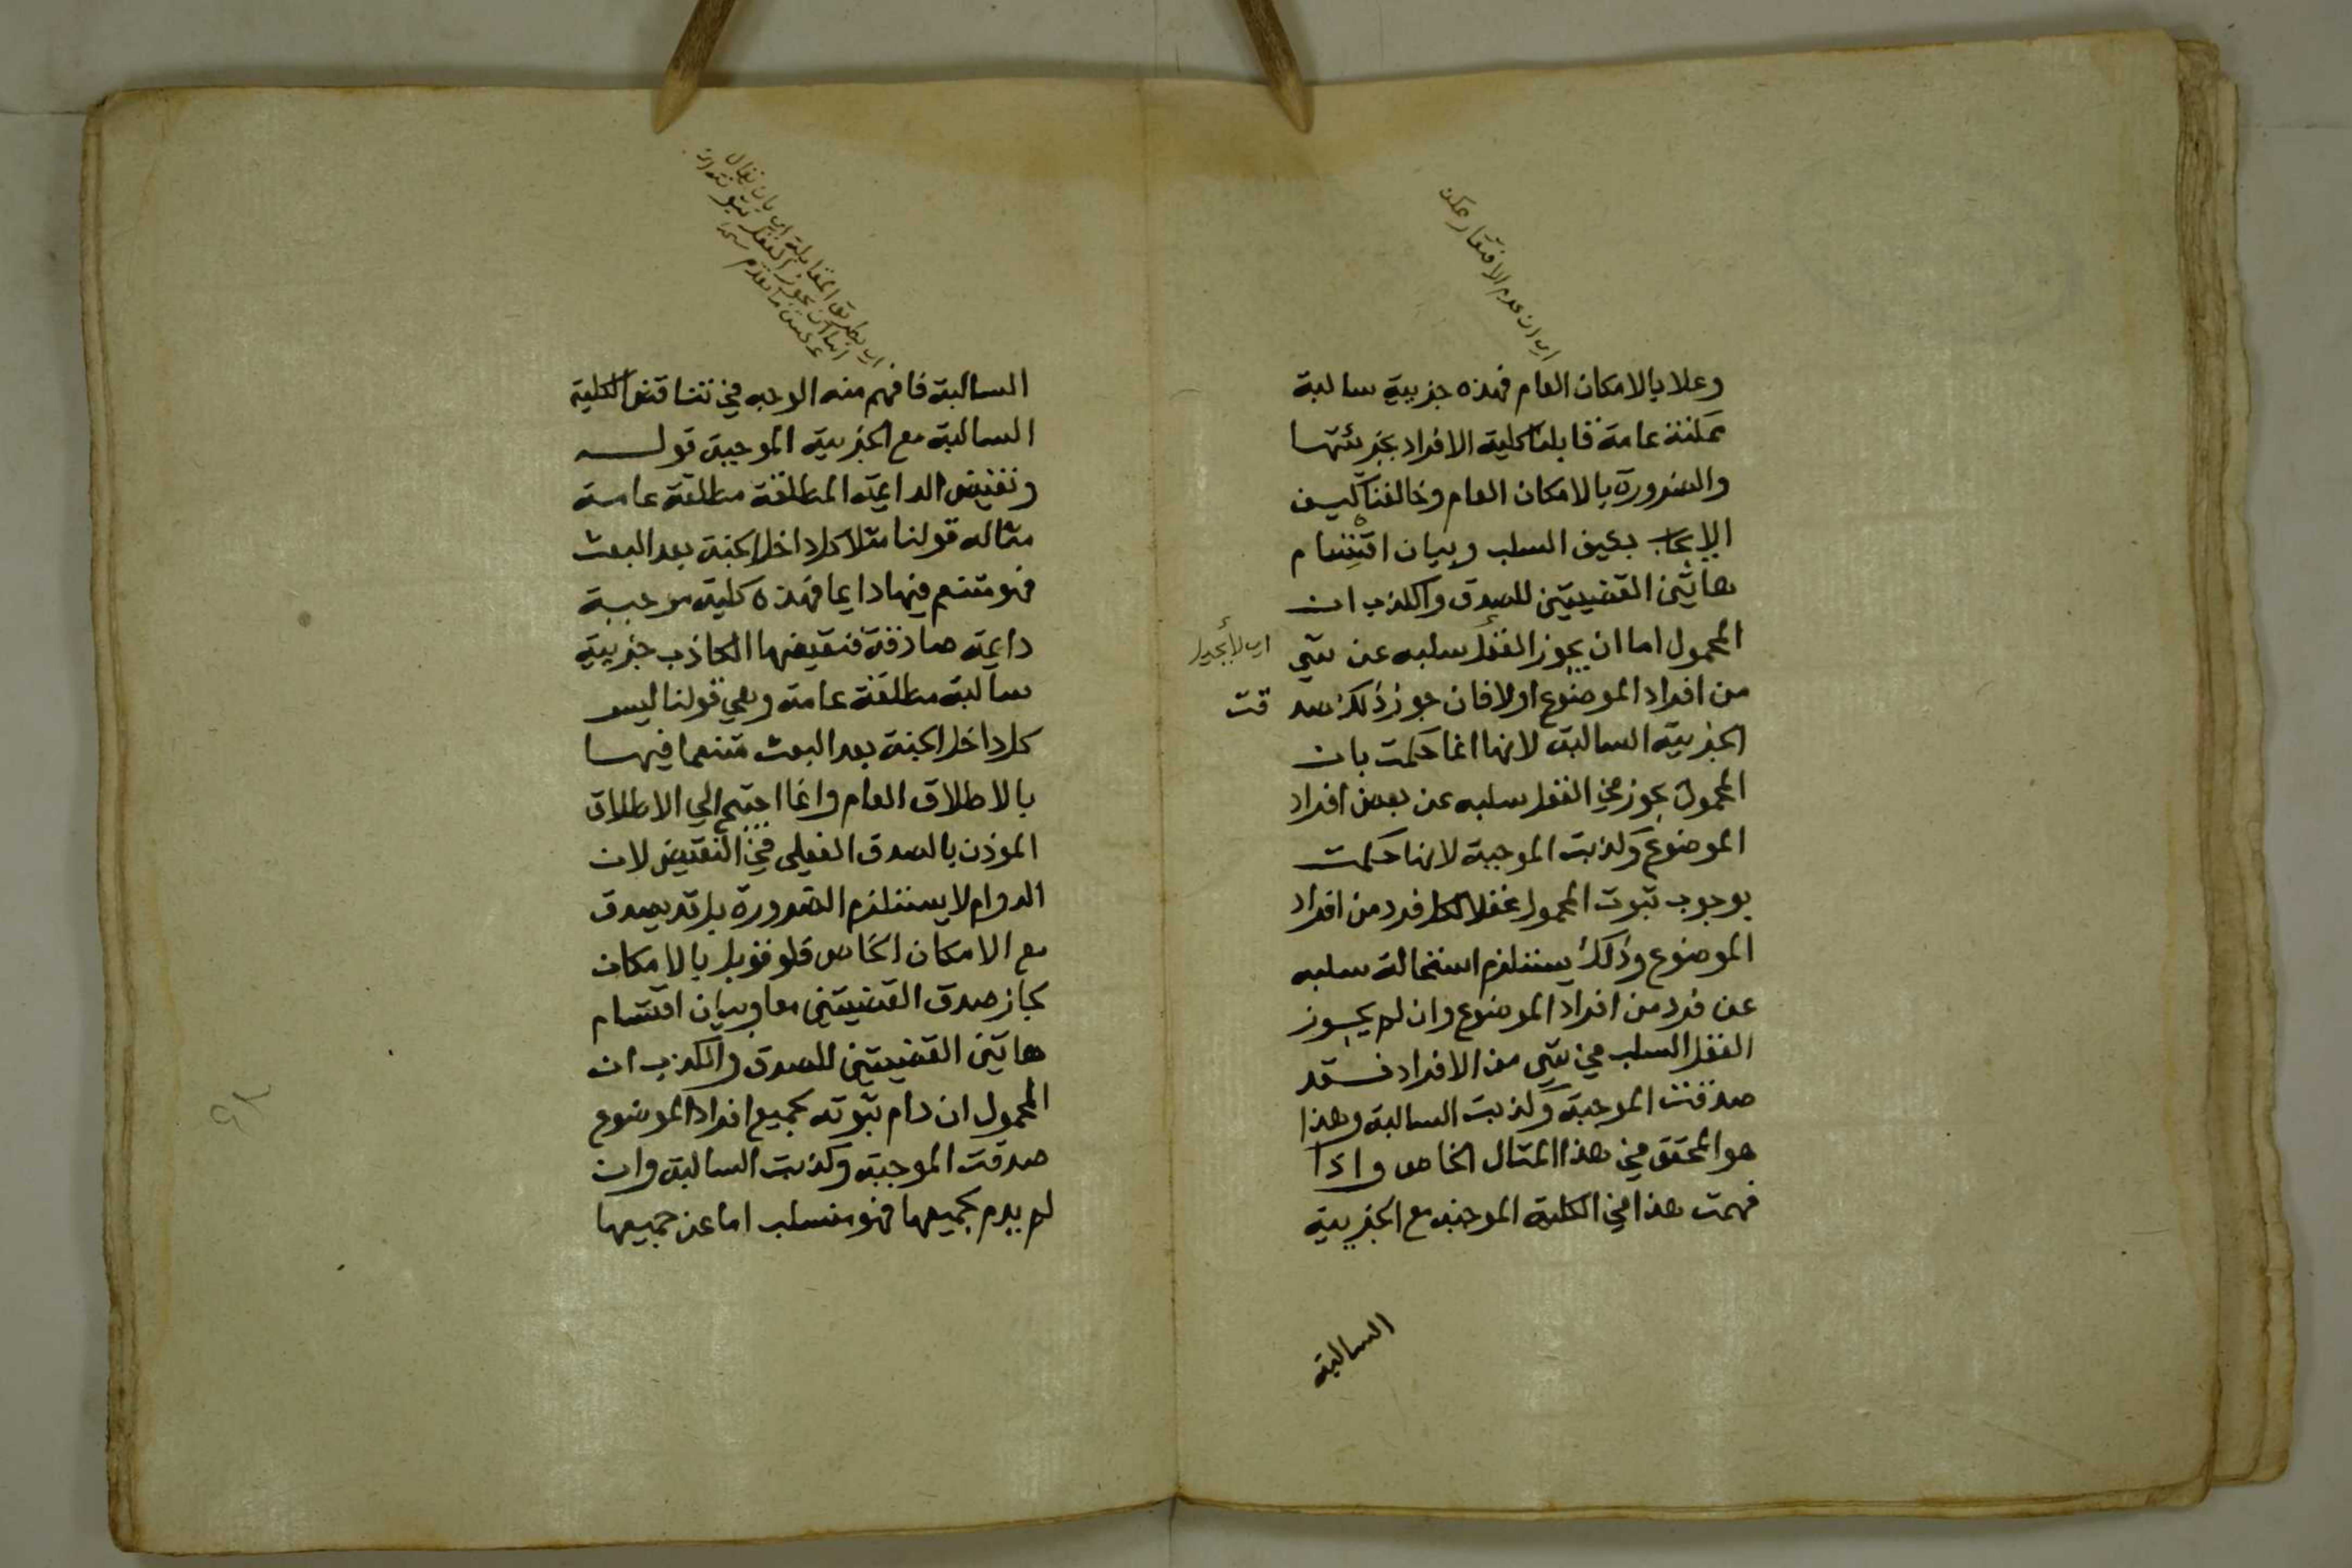 اي ان عدم الافتقار ممكن
وعلا بالامكان العام فهذه جزيية سالبة
ممكنة عامة قابلنا كلية الافراد بجزئيتها
والضرورة بالامكان العام وخالفنا كيف
الايجاب بعين السلب وبيان اقتسام
هاتين القضيتين للصدق والكذب ان
المحمول اما ان يجوز العقل سلبه عن شي
اي لا يجوز
من افراد الموضوع اولا فان جوز ذلك صد
قت
الجزيية السالبة لانها انما حكمت بان
المحمول يجوز في العقل سلبه عن بعض افراد
الموضوع وكذبت الموجبة لانها حكمت
بوجوب ثبوت المحمول عقلا لكل فرد من افراد
الموضوع وذلك يستلزم استحالة سلبه
عن فرد من افراد الموضوع وان لم يجوز
العقل السلب في شي من الافراد فقد
صدقت الموجبة وكذبت السالبة وهذا
هو المحقق في هذا المثال الخاص واذا
فهمت هذا في الكلية الموجبة مع الجزيية
السالبة
اي بطريق المقابلة اي بان يقال
عكس ما تقدم
السالبة فافهم منه الوجه في تناقض الكلية
السالبة مع الجزيية الموجبة قوله
ونقيض الدايمة المطلقة مطلقة عامة
مثاله قولنا مثلا كل داخل الجنة بعد البعث
فهو متنعم فيها دايما فهذه كلية موجبة
دايمة صادقة فنقيضها الكاذب جزيية
سالبة مطلقة عامة وهي قولنا ليس
كل داخل الجنة بعد البعث متنعما فيها
بالاطلاق العام وانما احتج الي الاطلاق
الموذن بالصدق الفعلي في النقيض لان
الدوام لا يستلزم الضرورة بل قد يصدق
مع الامكان الخاص فلو قوبل بالامكان
لجاز صدق القضيتين معا وبيان اقتسام
هاتين القضيتين للصدق والكذب ان
المحمول ان دام ثبوته لجميع افراد الموضوع
صدقت الموجبة وكذبت السالبة وان
لم يدم لجميعها فهو منسلب اما عن جميعها